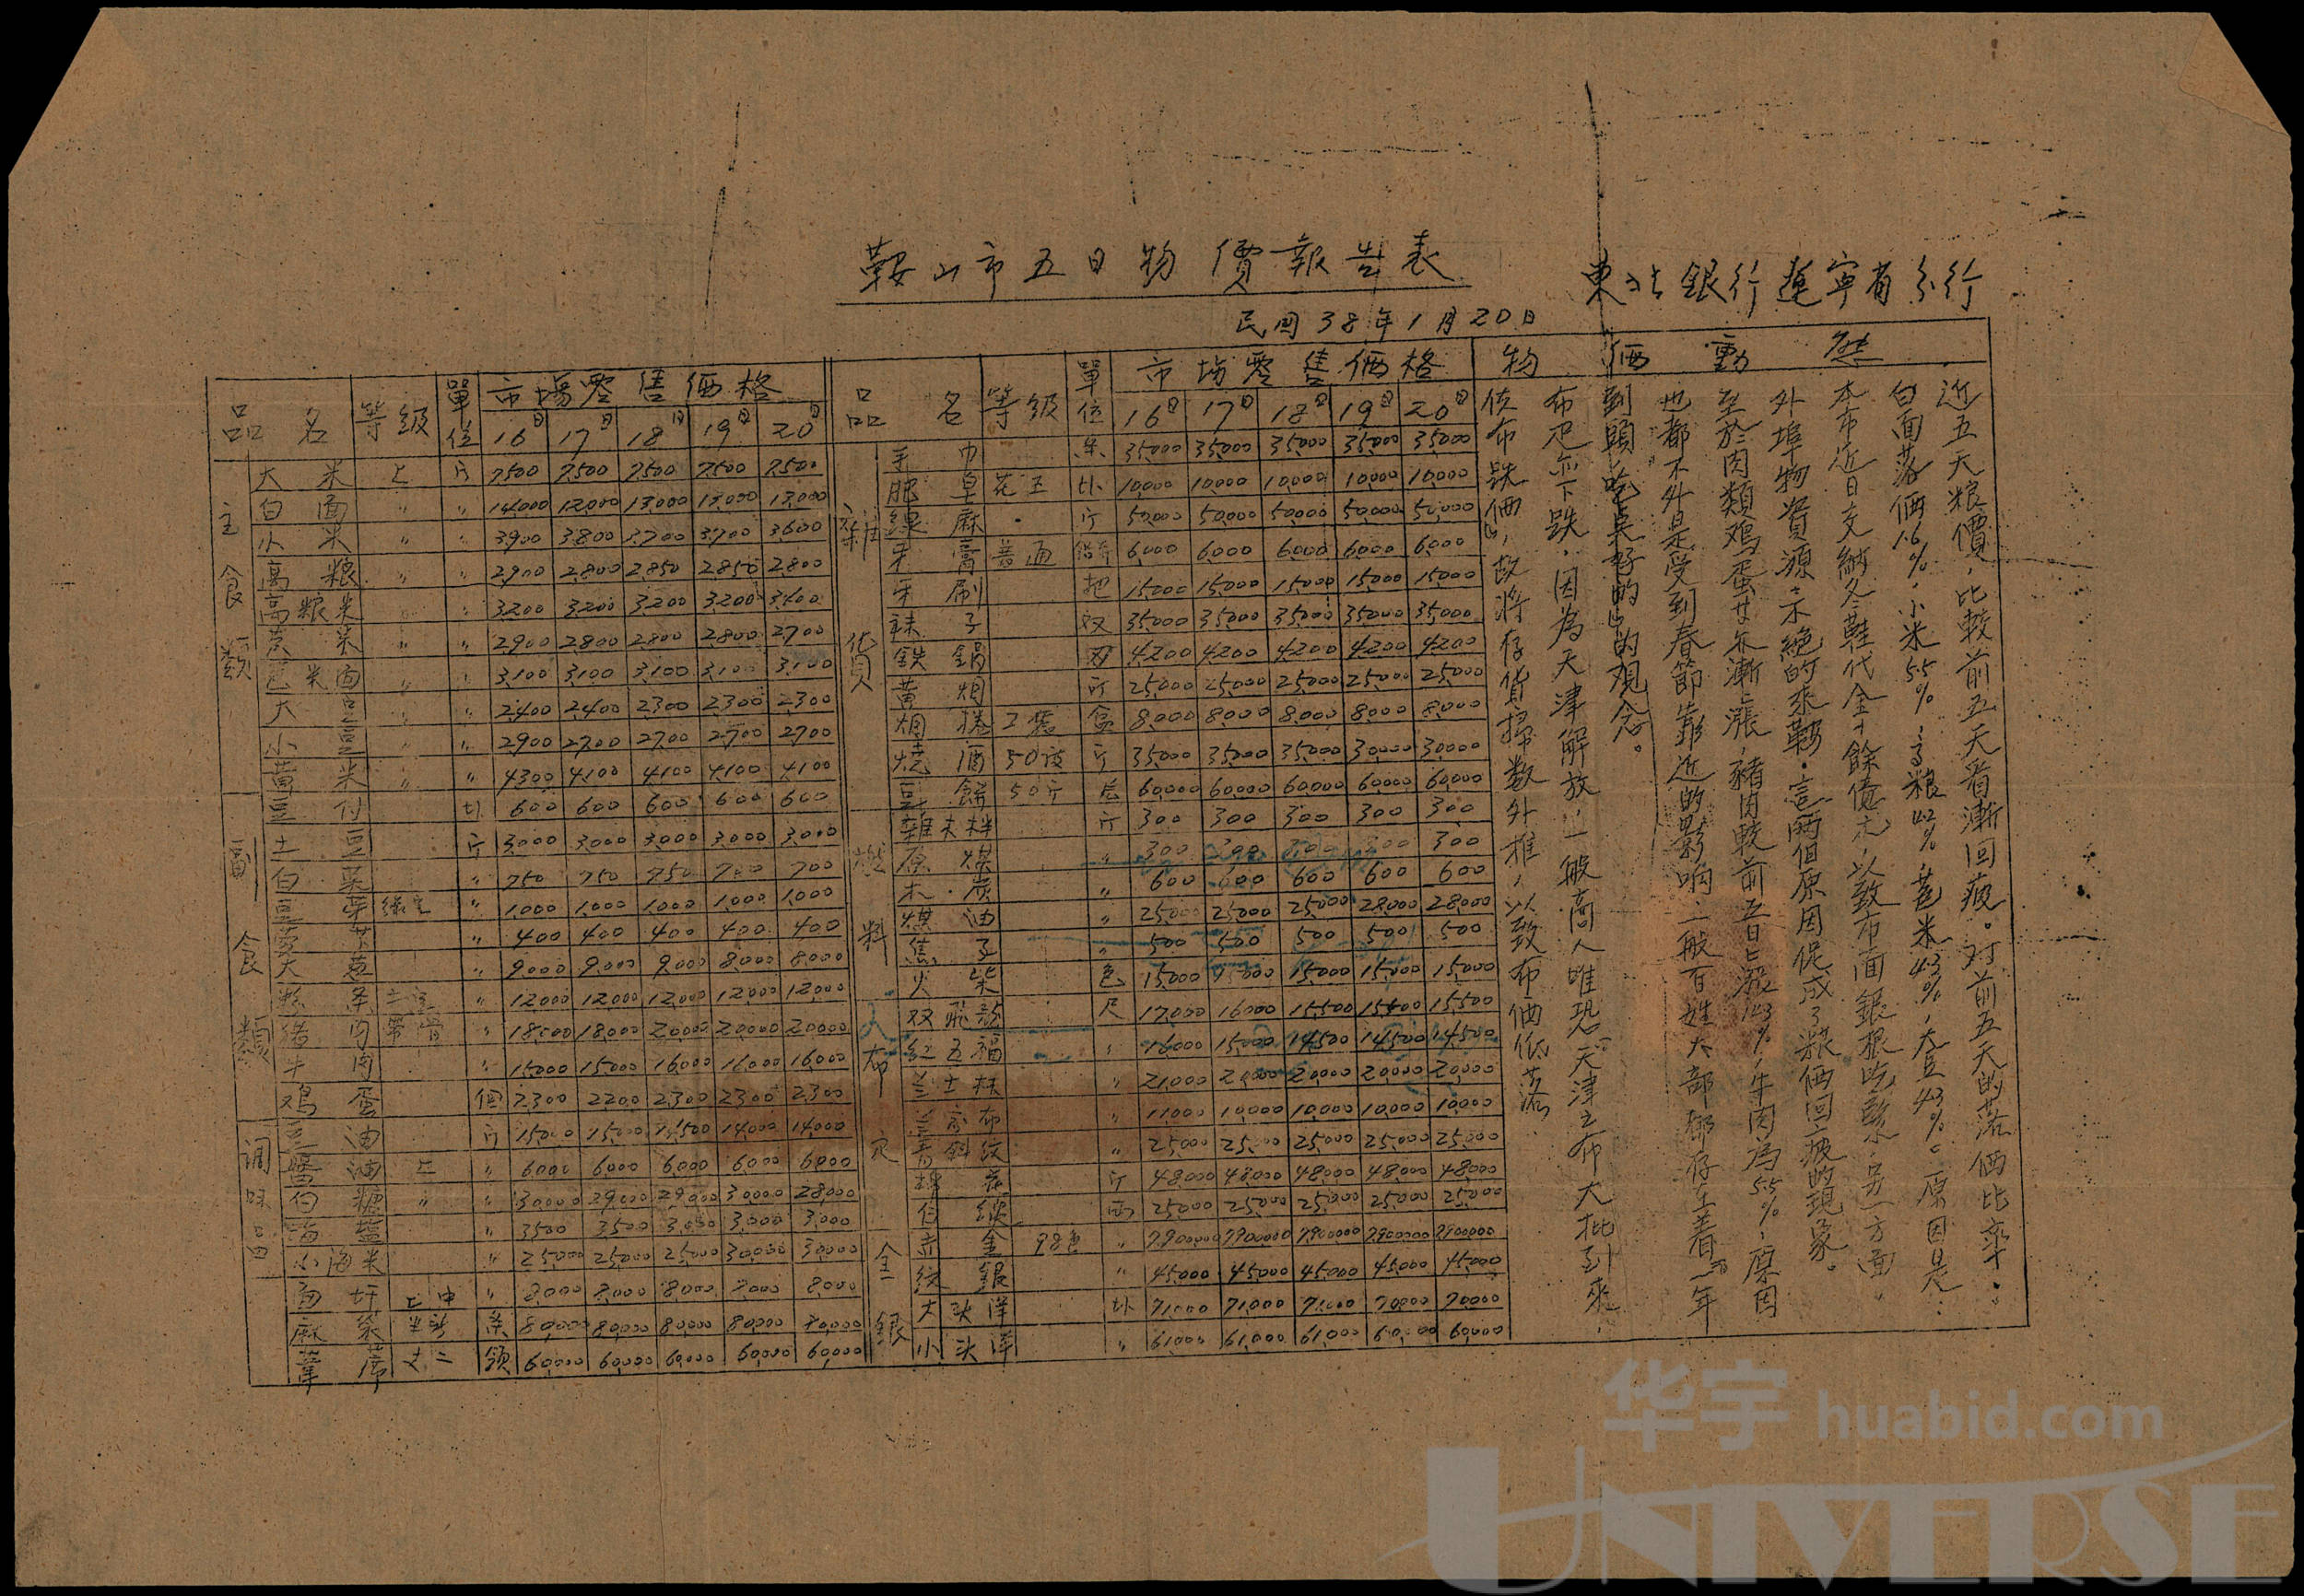 鞍山市五日物價報告表
東北銀行遼寧省分行
民國38年1月20日
品名 等級 單位 市場零售価格 16日 17日 18日 19日 20日
主食類
大米 上 斤 7500 7500 7500 7500 7500
白面 〃 〃 14000 12000 13000 13,000 13,000
小米 〃 〃 3900 3800 3700 3700 3600
高粮 〃 〃 2900 2,800 2,850 2850 2800
高粮米 〃 3200 3200 3200 3200 3400
〃 〃 2900 2,800 2800 2,800 2700
苞米面 〃 〃 3,100 3,100 3,100 3,100 3,100
大豆 〃 2400 2,400 2300 2300 2300
小豆 〃 〃 2900 2700 2700 2700 2700
黄米 〃 〃 4300 4,100 4,100 4,100 4,100
副食類
豆付 塊 600 600 600 600 600
土豆 斤 3,000 3,000 3,000 3,000 3,000
白菜 〃 750 750 750 700 700
豆芽 〃 1,000 1,000 1,000 1,000 1,000
〃 400 400 400 400 400
大葱 〃 9,000 9,000 9,000 8,000 8,000
粉条 〃 12,000 12,000 12,000 12,000 12,000
猪肉 帶骨 〃 18,000 18,000 20,000 20,000 20,000
牛肉 〃 15,000 15,000 16,000 16,000 16,000
鸡蛋 個 2,300 2200 2,300 2300 2,300
調味品
豆油 斤 15,000 15,000 14,500 14,000 14,000
醤油 上 〃 6,000 6,000 6,000 6,000 6,000
白糖 〃 〃 30000 29,000 29,000 30,000 28,000
海鹽 〃 3500 3,500 3,000 3,000 3,000
小海米 〃 25000 25,000 25,000 30,000 30,000
〃 8,000 8,000 8,000 8,000 8,000
麻袋 条 80,000 80,000 80,000 80,000 80,000
葦席 丈二 領 60,000 60,000 60,000 60,000 60,000
品名 等級 單位 市場零售価格 16日 17日 18日 19日 20日
雜貨
手巾 条 35,000 35,000 35,000 35,000 35,000
肥皂 花王 塊 10,000 10,000 10,000 10,000 10,000
線麻 斤 50,000 50,000 50,000 50,000 50,000
牙膏 6,000 6,000 6,000 6,000 6,000
牙刷 把 15,000 15,000 15,000 15,000 15,000
袜子 双 35,000 35,000 35,000 35,000 35,000
鉄鍋 4,200 4,200 4,200 4,200 4,200
黄烟 斤 25,000 25,000 25,000 25,000 25,000
烟捲 工農 盒 8,000 8,000 8,000 8,000 8,000
燒酒 50度 斤 35,000 35,000 35,000 30,000 30,000
豆餅 50斤 片 60,000 60,000 60,000 60,000 60,000
燃料
雜木柈 斤 300 300 300 300 300
原煤 〃 300 300 300 300 300
木炭 〃 600 600 600 600 600
煤油 〃 25,000 25,000 25,000 28,000 28,000
焦子 〃 500 500 500 500 500
火柴 包 15,000 15,000 15,000 15,000 15,000
布疋
双飛龍 尺 17,000 16,000 15,500 15,400 15,500
紅五福 〃 16,000 15,000 14,500 14,500 14,500
兰士林 〃 21,000 20,000 20,000 20,000 20,000
〃 11,000 10,000 10,000 10,000 10,000
青斜紋 〃 25,000 25,000 25,000 25,000 25,000
棉花 斤 48,000 48,000 48,000 48,000 48,000
两 25,000 25,000 25,000 25,000 25,000
金銀
赤金 98色 〃 7,900,000 7,900,000 7,900,000 7,900,000 7,900,000
紋銀 〃 45,000 45,000 45,000 45,000 45,000
大头洋 塊 71,000 71,000 71,000 70,000 70,000
小头洋 〃 61,000 61,000 61,000 60,000 60,000
物価動態
近五天粮價，比較前五天省漸回疲。对前五天的落価比率：
白面落価1.6%，小米5.5%，高粮4.2%，苞米4.3%，大豆4.3%。原因是：
本市近日交納冬鞋代金十餘億元，以致市面銀根吃緊，另一方面，
外埠物資源源不絕的來鞍，這両個原因促成了粮価回疲的現象。
至於肉類鸡蛋廿亦漸漸漲，豬肉較前五日上漲12.3%，牛肉為5.5%，原因
也都不外是受到春節靠近的影响，一般百姓大部都存在着“一年
到頭吃点好的”的观念。
布疋亦下跌，因為天津解放，一般商人唯恐“天津之布大批到來，
使布跌価”，故將存貨掃数外推，以致布価低落。
华宇 huabid.com
UNIVERSE